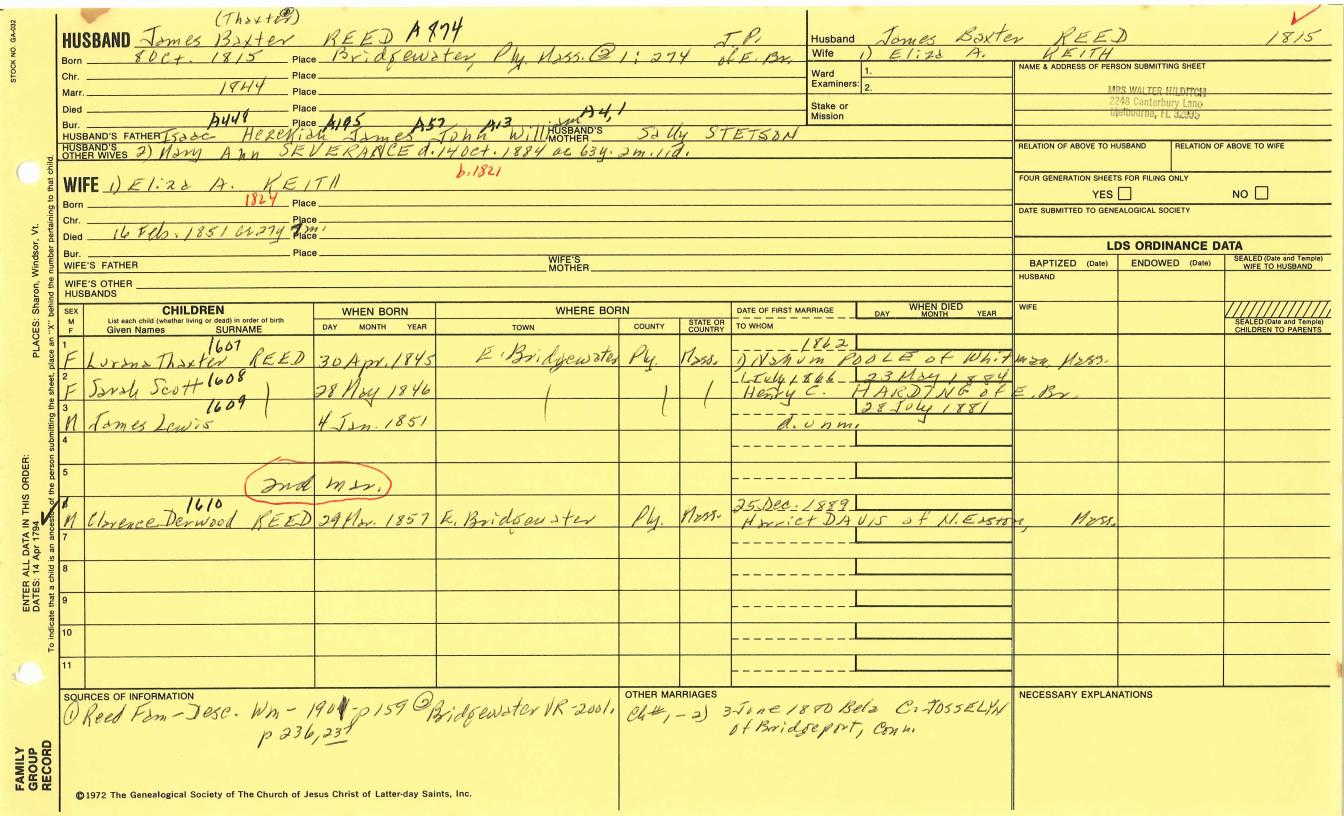 STOCK NO. GA-032
(Thaxter②)
HUSBAND James Baxter REED A874 J.P.
Born 8 Oct. 1815 Place Bridgewater, Ply. Mass. @ 1: 274 of E. Br.
Chr. Place
Marr. 1844 Place
Died Place
Bur. A448 Place A195 A57 A13 A4,1
HUSBAND'S FATHER Isaac Hezekiah James John William HUSBAND'S MOTHER Sally STETSON
HUSBAND'S OTHER WIVES 2) Mary Ann SEVERANCE d. 14 Oct. 1884 ae 63y. 2m. 11d.
b. 1821
WIFE 1) Eliza A. KEITH
Born 1824 Place
Chr. Place
Died 16 Feb. 1851 ae 27y 7m. Place
Bur. Place
WIFE'S FATHER WIFE'S MOTHER
WIFE'S OTHER HUSBANDS
Husband James Baxter REED 1815
Wife 1) Eliza A. KEITH
Ward Examiners: 1.
2.
Stake or Mission
NAME & ADDRESS OF PERSON SUBMITTING SHEET
MRS WALTER HILDITCH
2248 Canterbury Lane
Melbourne, FL 32935
RELATION OF ABOVE TO HUSBAND RELATION OF ABOVE TO WIFE
FOUR GENERATION SHEETS FOR FILING ONLY
YES NO
DATE SUBMITTED TO GENEALOGICAL SOCIETY
LDS ORDINANCE DATA
BAPTIZED (Date) ENDOWED (Date) SEALED (Date and Temple) WIFE TO HUSBAND
HUSBAND
WIFE
SEALED (Date and Temple) CHILDREN TO PARENTS
SEX M F CHILDREN WHEN BORN WHERE BORN DATE OF FIRST MARRIAGE WHEN DIED
List each child (whether living or dead) in order of birth
Given Names SURNAME DAY MONTH YEAR TOWN COUNTY STATE OR COUNTRY TO WHOM DAY MONTH YEAR
1 1607 1862
F Lurana Thaxter REED 30 Apr. 1845 E. Bridgewater Ply. Mass. 1) Nahum POOLE of Whitman, Mass.
2 1608 1 July 1866 23 May 1884
F Sarah Scott 28 May 1846 Henry C. HARDING of E. Br.
3 1609 28 July 1881
M James Lewis 4 Jan. 1851 d. unm.
4
5 2nd mar.
6 1610 25 Dec. 1889
M Clarence Derwood REED 29 Mar. 1857 E. Bridgewater Ply. Mass. Harriet DAVIS of N. Easton, Mass.
7
8
9
10
11
SOURCES OF INFORMATION
① Reed Fam - Desc. Wm - 1901 - p 159 ② Bridgewater VR - 2001.
p 236, 237
OTHER MARRIAGES
Ch #1 - 2) 3 June 1880 Bela C. JOSSELYN
of Bridgeport, Conn.
NECESSARY EXPLANATIONS
©1972 The Genealogical Society of The Church of Jesus Christ of Latter-day Saints, Inc.
FAMILY GROUP RECORD
ENTER ALL DATA IN THIS ORDER:
DATES: 14 Apr 1794
PLACES: Sharon, Windsor, Vt.
To indicate that a child is an ancestor of the person submitting the sheet, place an "X" behind the number pertaining to that child.